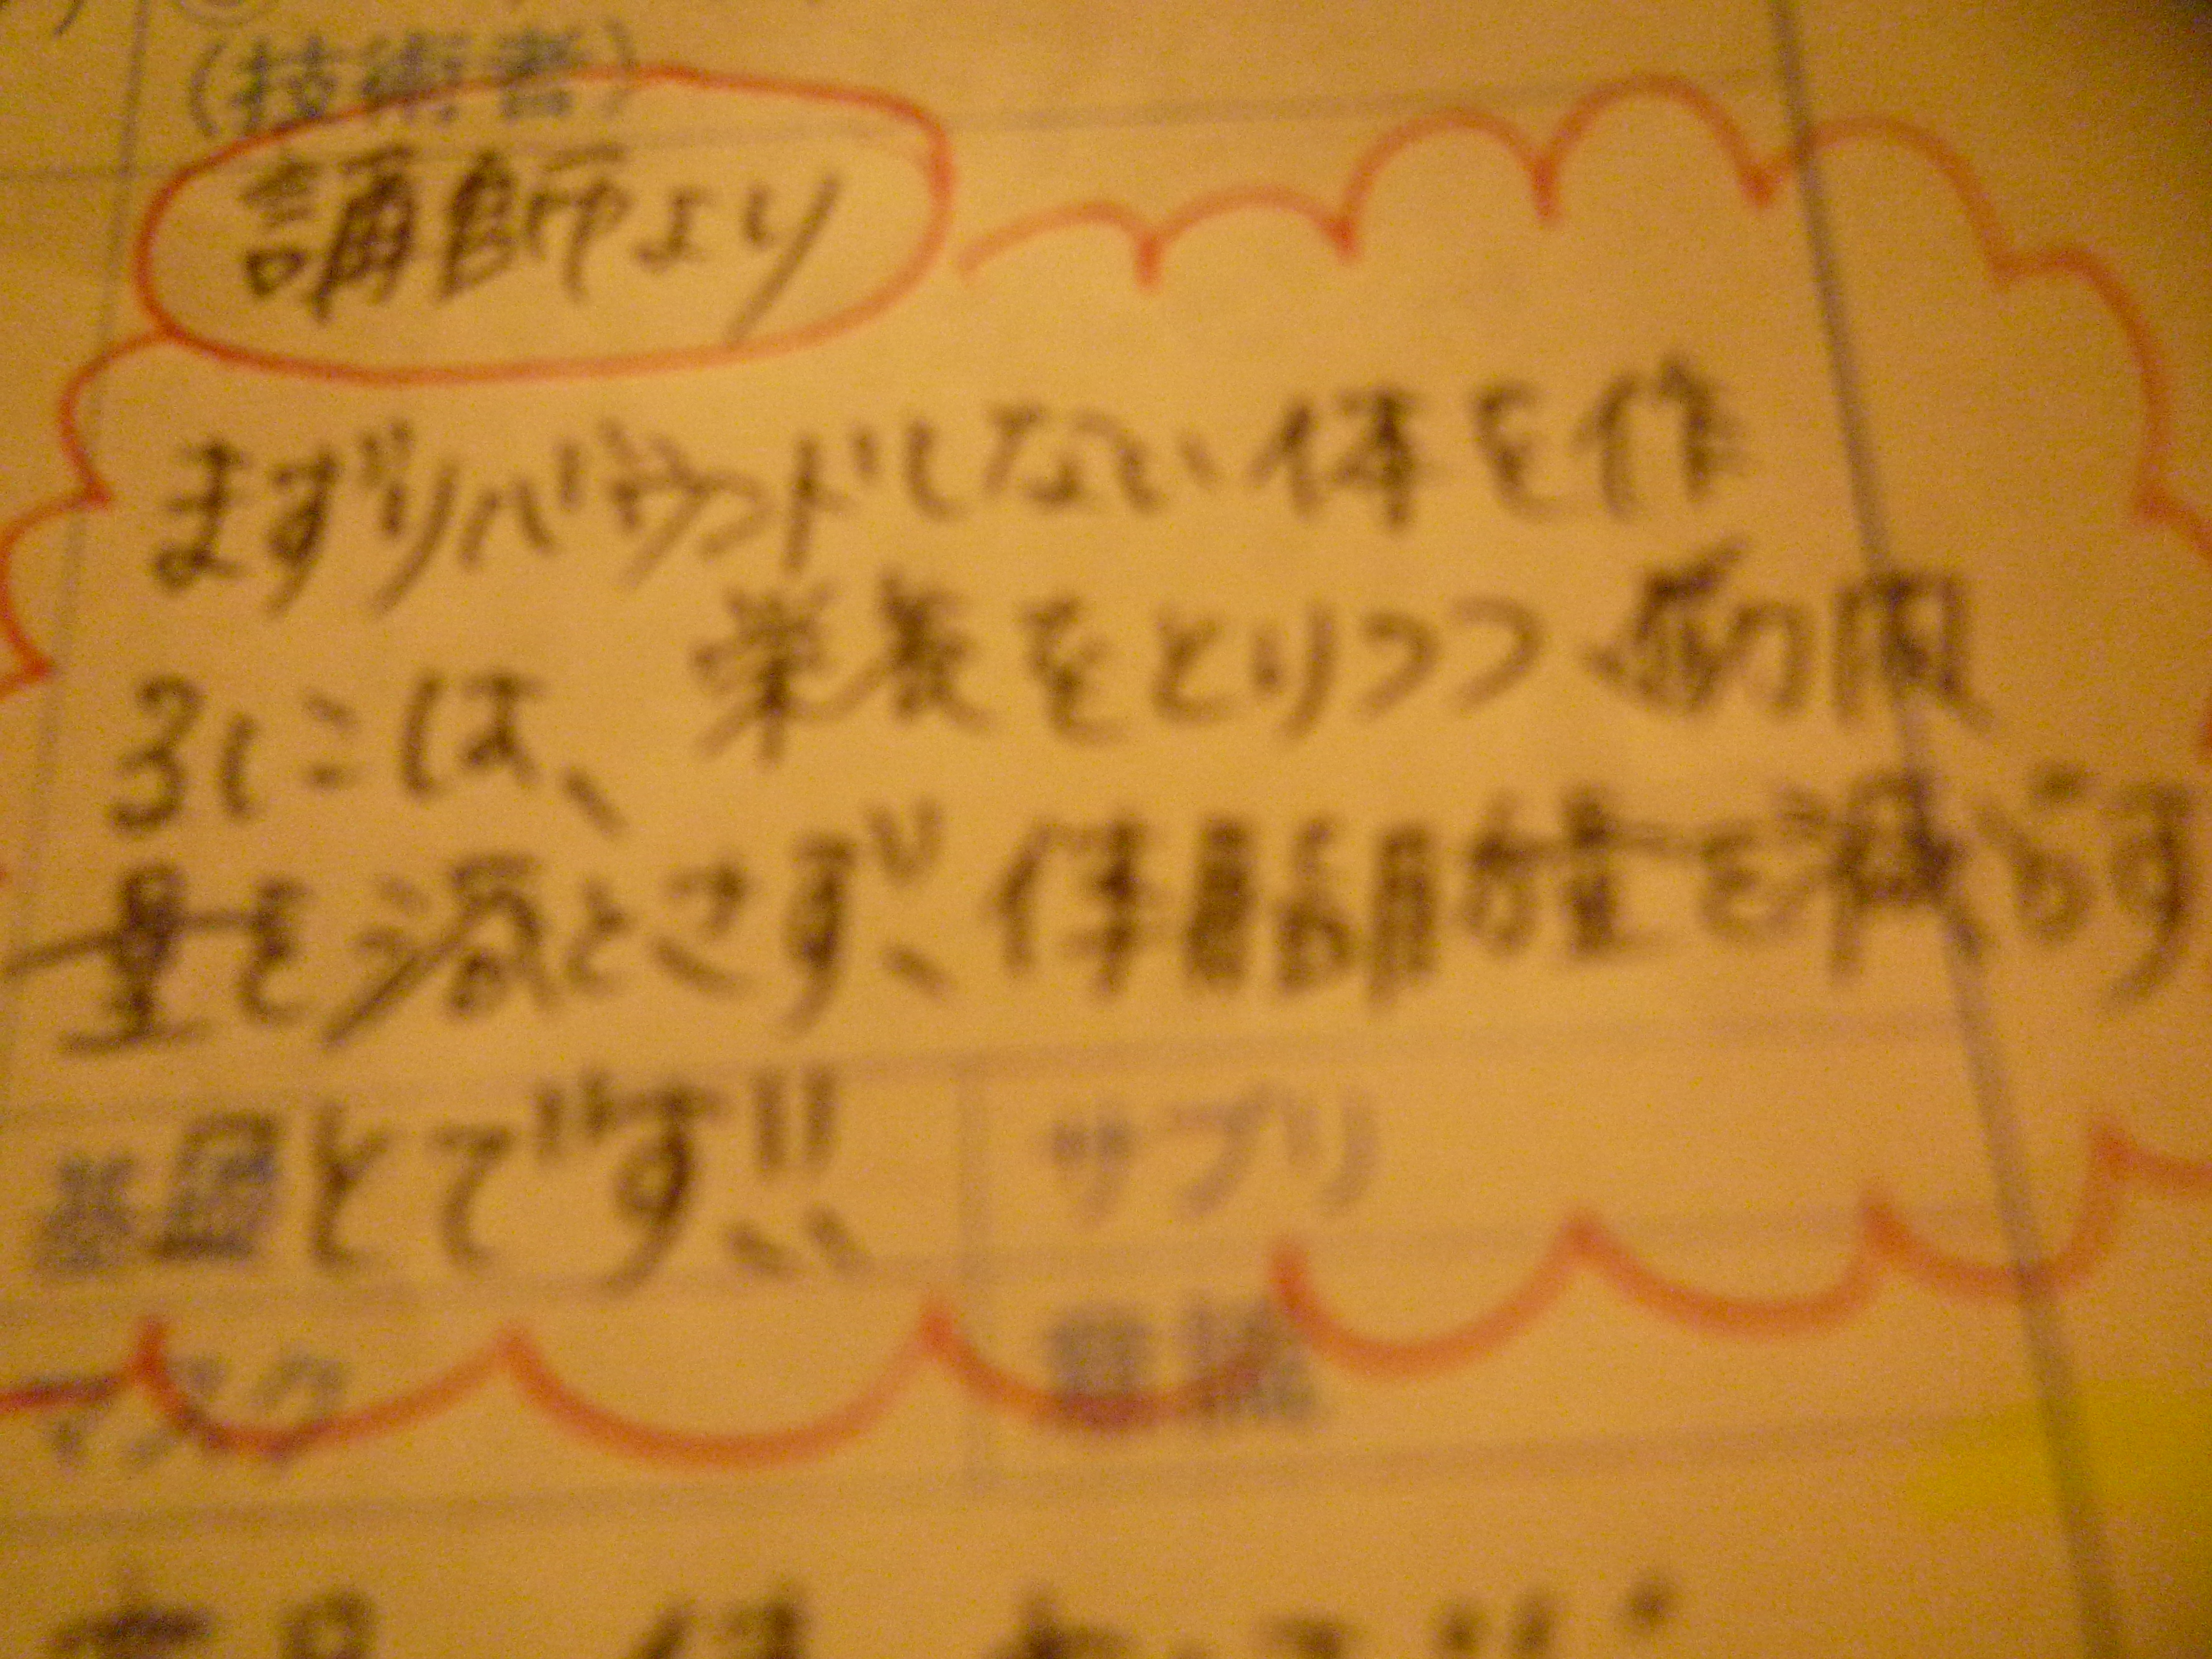 (技術者)
講師より
まずリバウンドしない体を作
るには、栄養をとりつつ筋肉
量を落とさず、体脂肪量を減らす
ことです!!
サプリ
マスク